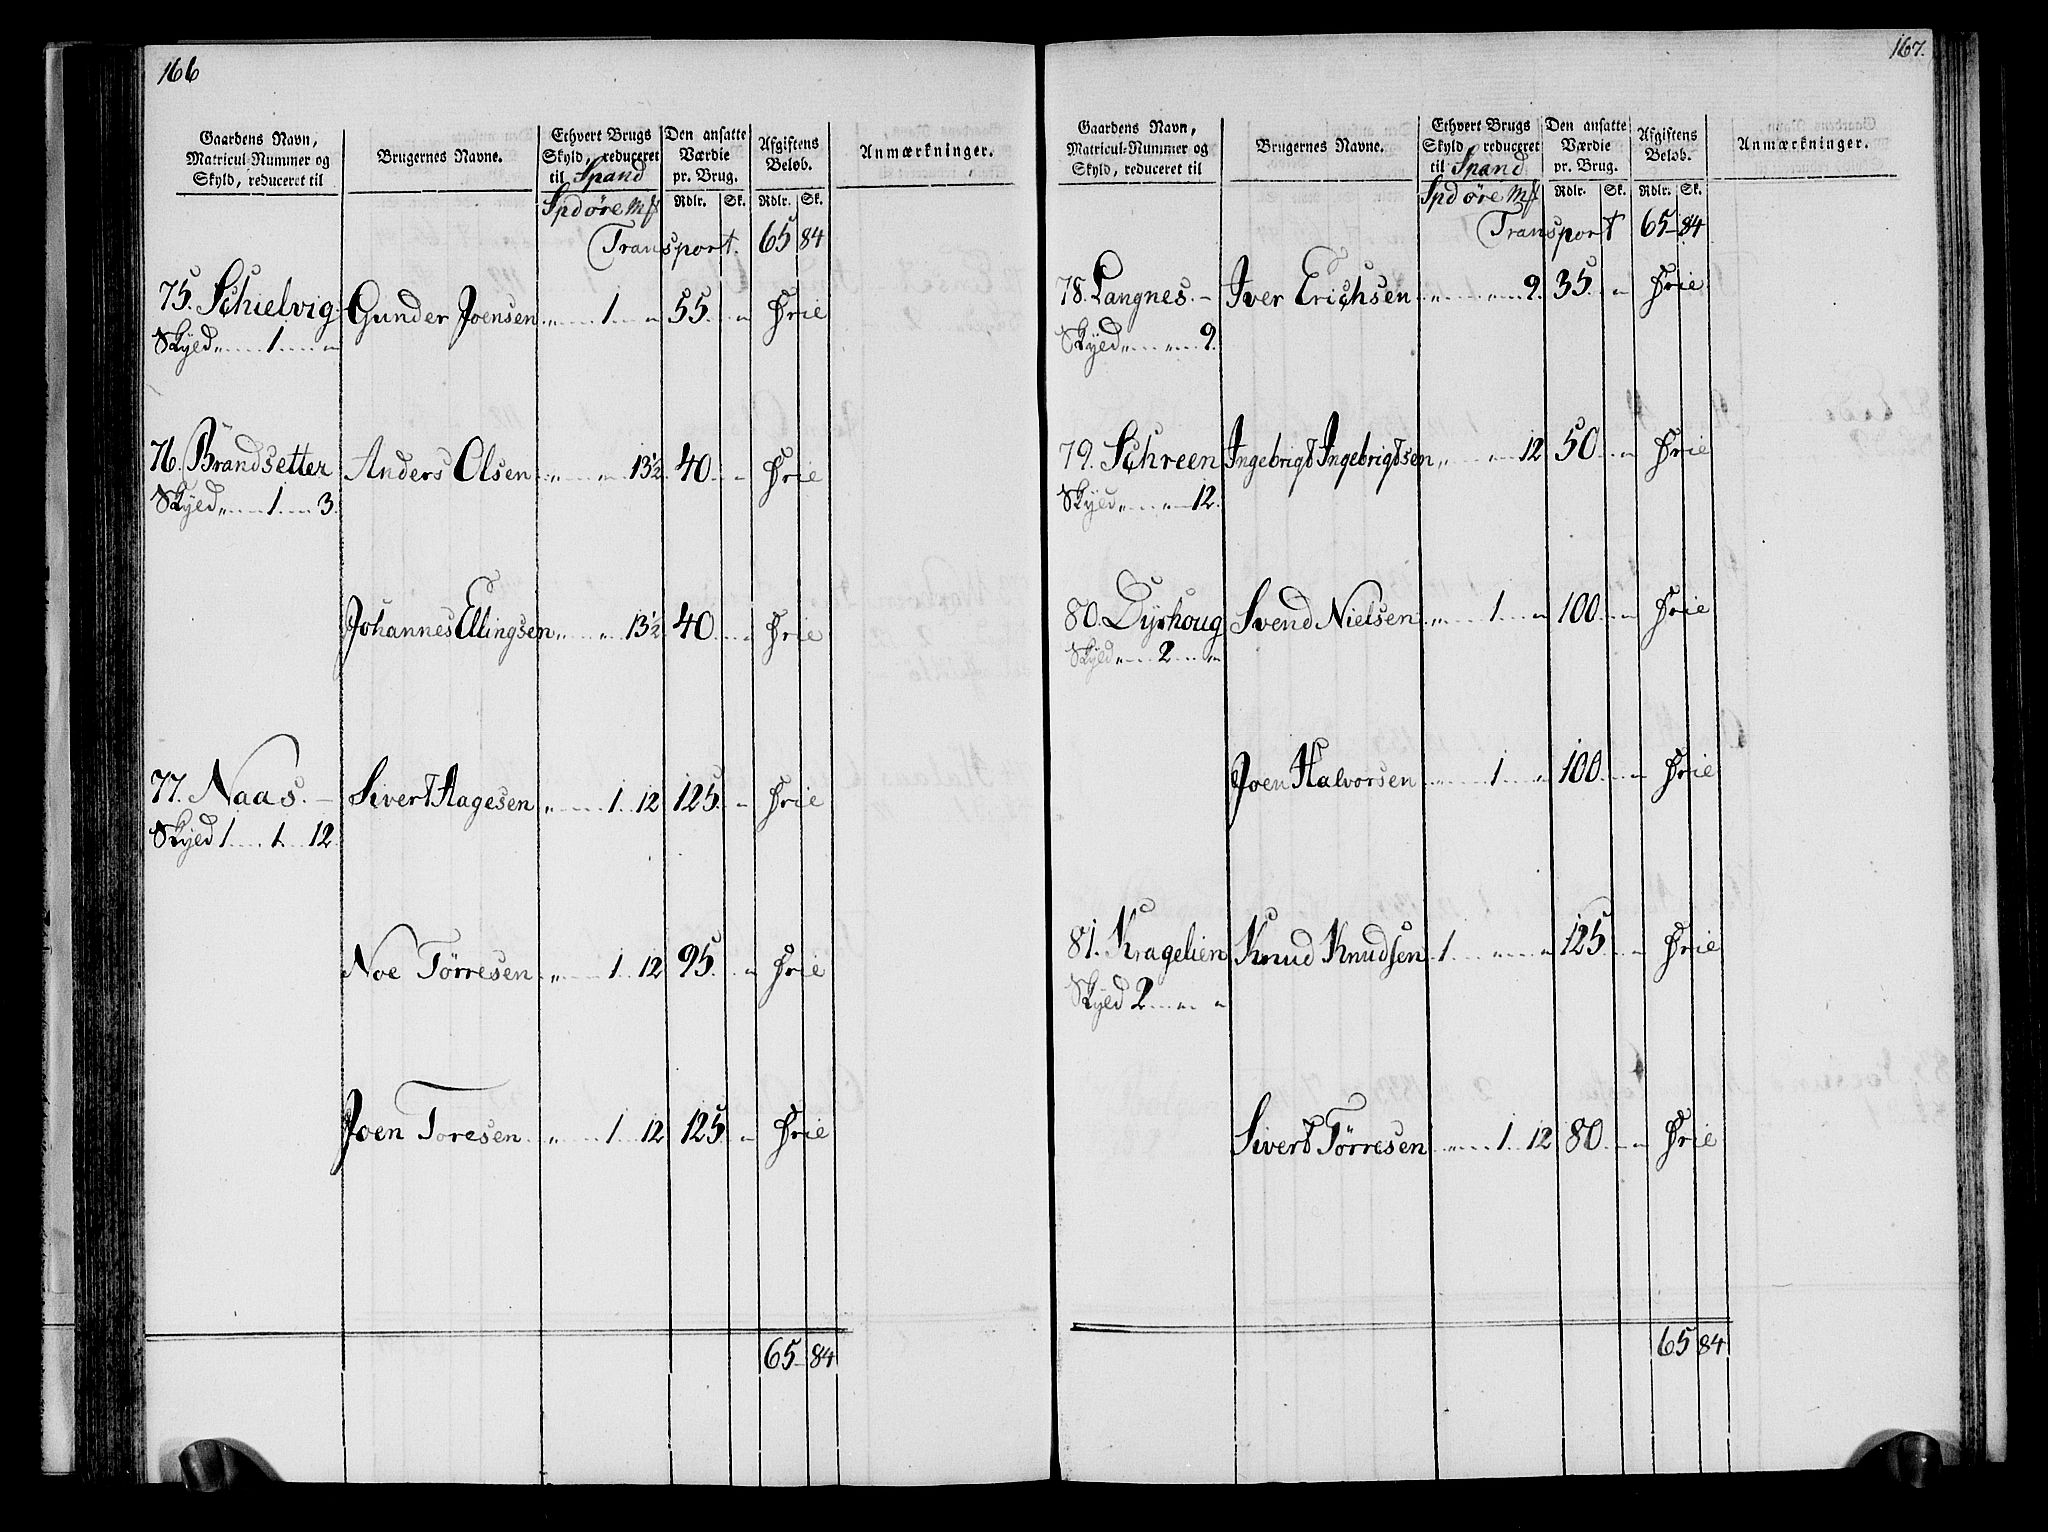 166
Gaardens Navn, Matricul-Nummer og Skyld, reduceret til
Brugernes Navne.
Ethvert Brugs Skyld, reduceret til Spand
Den ansatte Værdie pr. Brug.
Afgiftens Beløb.
Anmærkninger.
Spd øre Rdlr. Sk. Rdlr. Sk.
Transport. 65 84
75. Schielvig Gunder Joensen „ 1 „ 55 „ Frie
Skyld „ 1 „
76. Brandsetter Anders Olsen „ „ 13½ 40 „ Frie
Skyld „ 1 3.
Johannes Ellingsen „ „ 13½ 40 „ Frie
77. Naas. – Sivert Aagesen „ 1 12 125. „ Frie
Skyld 1 1 12
Noe Tørresen „ 1 12 95 „ Frie
Joen Toresen „ 1 12 125 „ Frie
65 84
167.
Gaardens Navn, Matricul-Nummer og Skyld, reduceret til
Brugernes Navne.
Ethvert Brugs Skyld, reduceret til Spand
Den ansatte Værdie pr. Brug.
Afgiftens Beløb.
Anmærkninger.
Spd øre Rdlr. Sk. Rdlr. Sk.
Transport 65 84
78. Langnes. – Iver Erichsen „ „ 9. 35. „ Frie
Skyld „ „ 9.
79. Schreen Ingebrigt Ingebrigtsen „ „ 12 50 „ Frie
Skyld „ „ 12.
80. Dyrhoug Svend Nielsen „ 1 „ 100 „ Frie
Skyld „ 2 „
Joen Halvorsen „ 1 „ 100 „ Frie
81. Kragelien Knud Knudsen 1 „ „ 125 „ Frie
Skyld 2 „ „
Sivert Tørresen „ 1 12 80 „ Frie
65 84